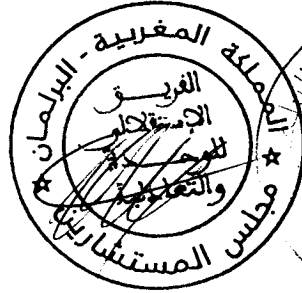 المملكة المغربية - البرلمان
الفريق
الاستقلالي
للوحدة
والتعادلية
مجلس المستشارين